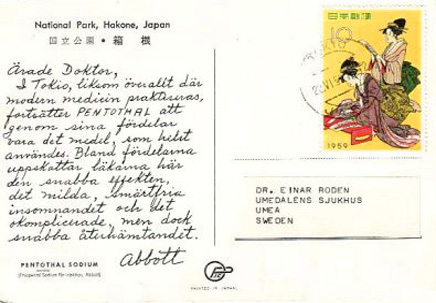 National Park, Hakone, Japan
国立公園・箱根
Ärade Doktor,
I Tokio, liksom överallt där
modern medicin praktiseras,
fortsätter PENTOTHAL att
genom sina fördelar
vara det medel, som helst
användes. Bland fördelarna
uppskattar läkarna här
den snabba effekten,
det milda, smärtfria
insomnandet och det
okomplicerade, men dock
snabba återhämtandet.
Abbott
PENTOTHAL SODIUM
(Thiopental Sodium for Injection, Abbott)
日本郵便
10
TOKYO
1959
DR. EINAR RODEN
UMEDALENS SJUKHUS
UMEA
SWEDEN
PRINTED IN JAPAN